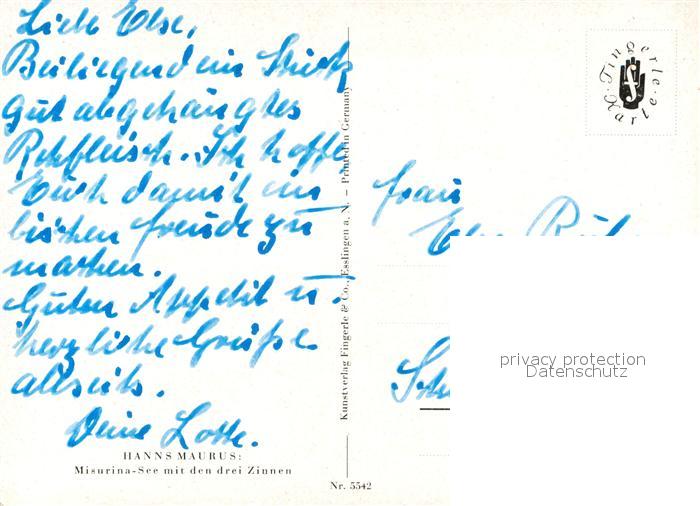 Liebe Else,
Beiliegend ein Stück
gut abgehangtes
Rehfleisch. Ich hoffe
Euch damit ein
bischen Freude zu
machen.
Guten Appetit u.
herzliche Grüße
allseits.
Deine Lotte.
HANNS MAURUS:
Misurina-See mit den drei Zinnen
Kunstverlag Fingerle & Co., Esslingen a. N. – Printed in Germany
Nr. 5542
Fingerle-Karte
f
Frau
Else
privacy protection
Datenschutz